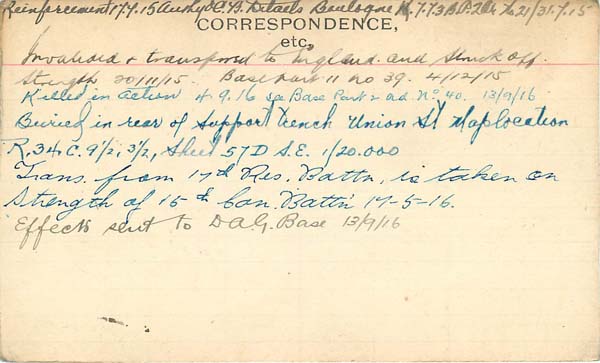 Reinforcement 17.7.15 Authy C.B. Details Boulogne K.7.73 B.P. 2 21/31.7.15
CORRESPONDENCE,
etc.
Invalided & transferred to England and struck off
strength 20/11/15. Base Part 11 no 39. 4/12/15
Killed in Action 4.9.16 Base Part 2 No. 40. 13/9/16
Buried in rear of support trench Union St Map location
R.34.C. 9½, 3½, Sheet 57D S.E. 1/20.000
Trans. from 17th Res. Battn, is taken on
strength of 15th Can. Battn 17-5-16.
Effects sent to D.A.G. Base 13/9/16